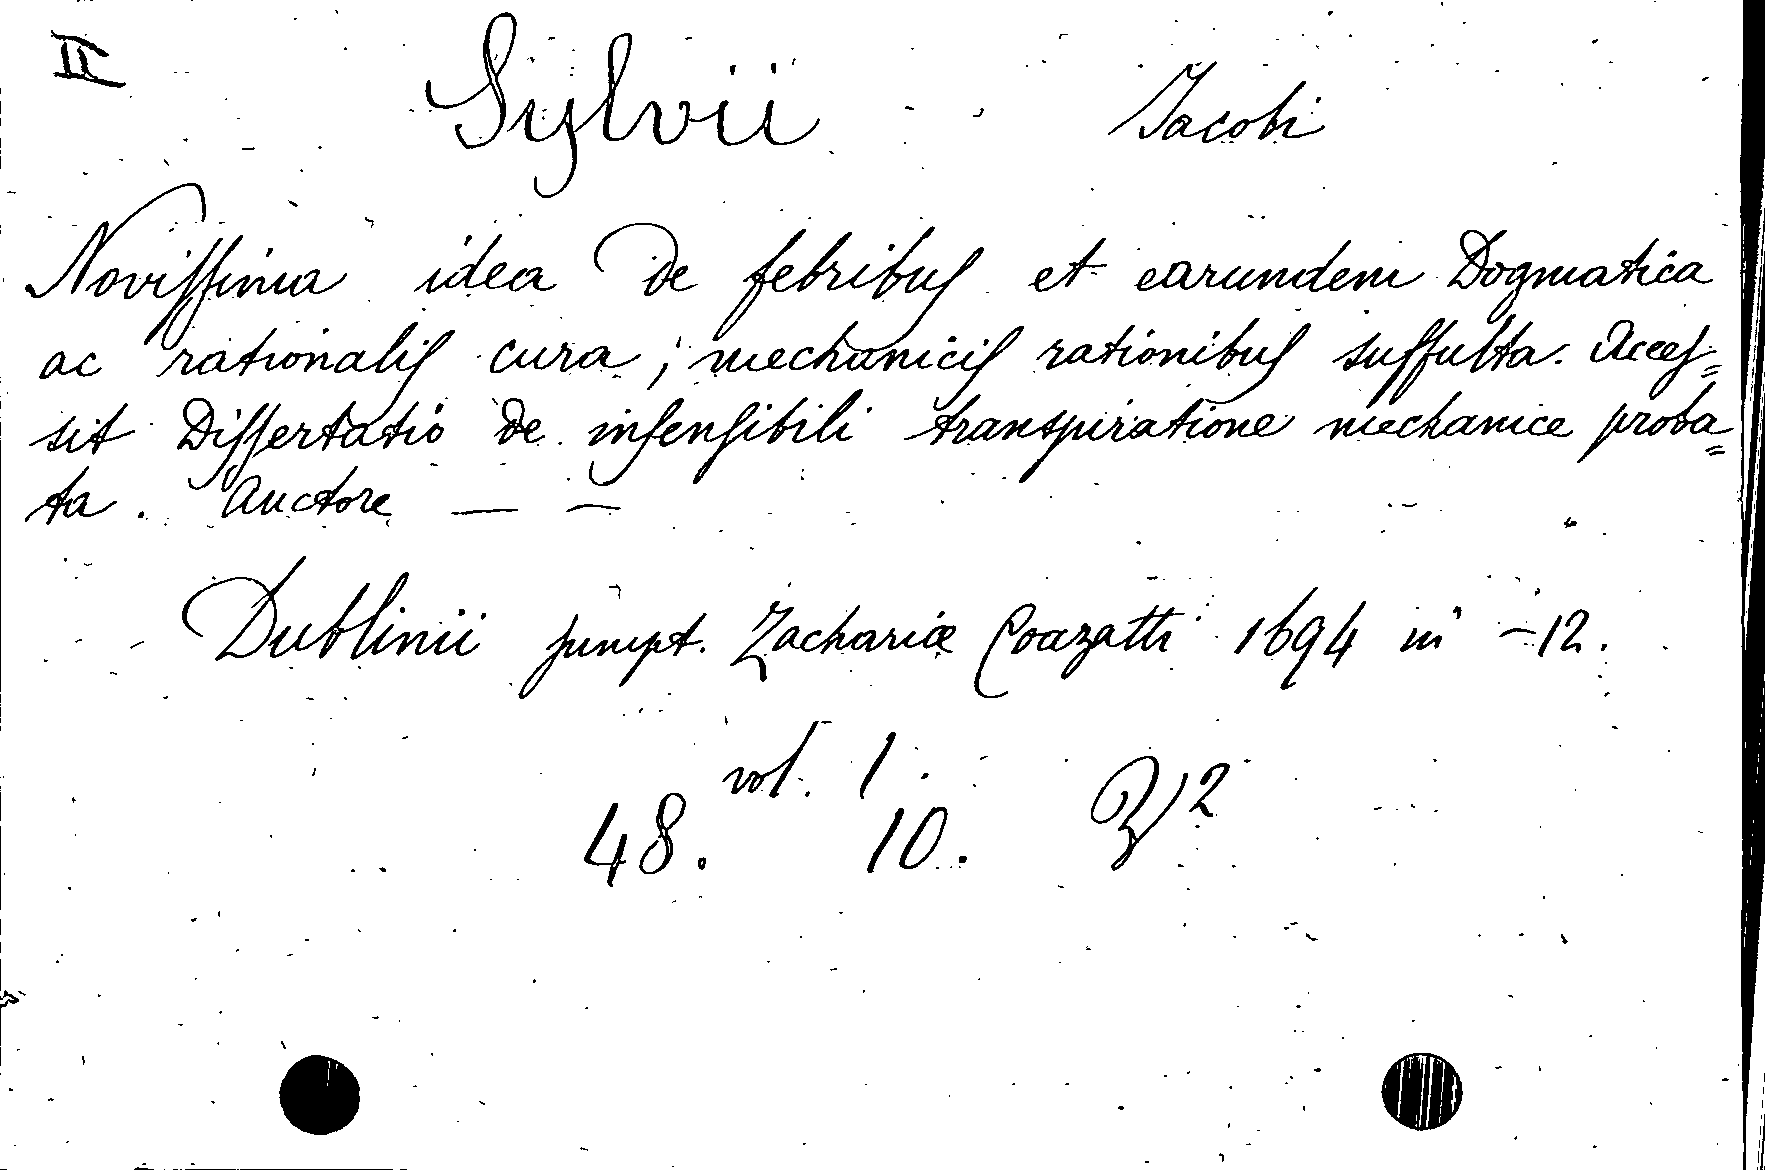 II
Sylvii Jacobi
Novissima idea de febribus et earundem Dogmatica
ac rationalis cura, mechanicis rationibus suffulta. Acces=
sit Dissertatio de insensibili transpiratione mechanice proba=
ta. Auctore — —
Dublinii sumpt. Zachariæ Coazatti 1694 in -12.
vol. 1.
48. 10.